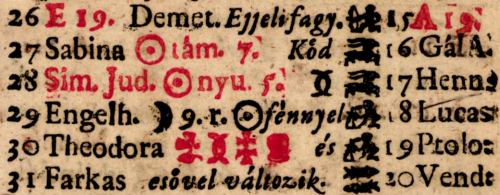 26 E 19. Demet. Ejjeli fagy. 15 A 19.
27 Sabina ☉ tám. 7. Kód 16 Gál
28 Sim. Jud. ☉ nyu. 5. 17 Henn
29 Engelh. ☽ 9. r. ☉ fénnyel 18 Lucas
30 Theodora és 19 Ptolo
31 Farkas esővel változik. 20 Vend